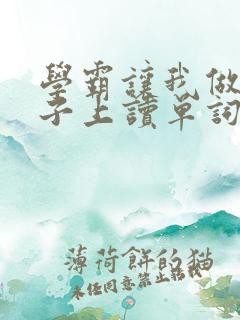 學霸讓我做
子上讀單詞
薄荷餅的猫
未经同意禁止转载